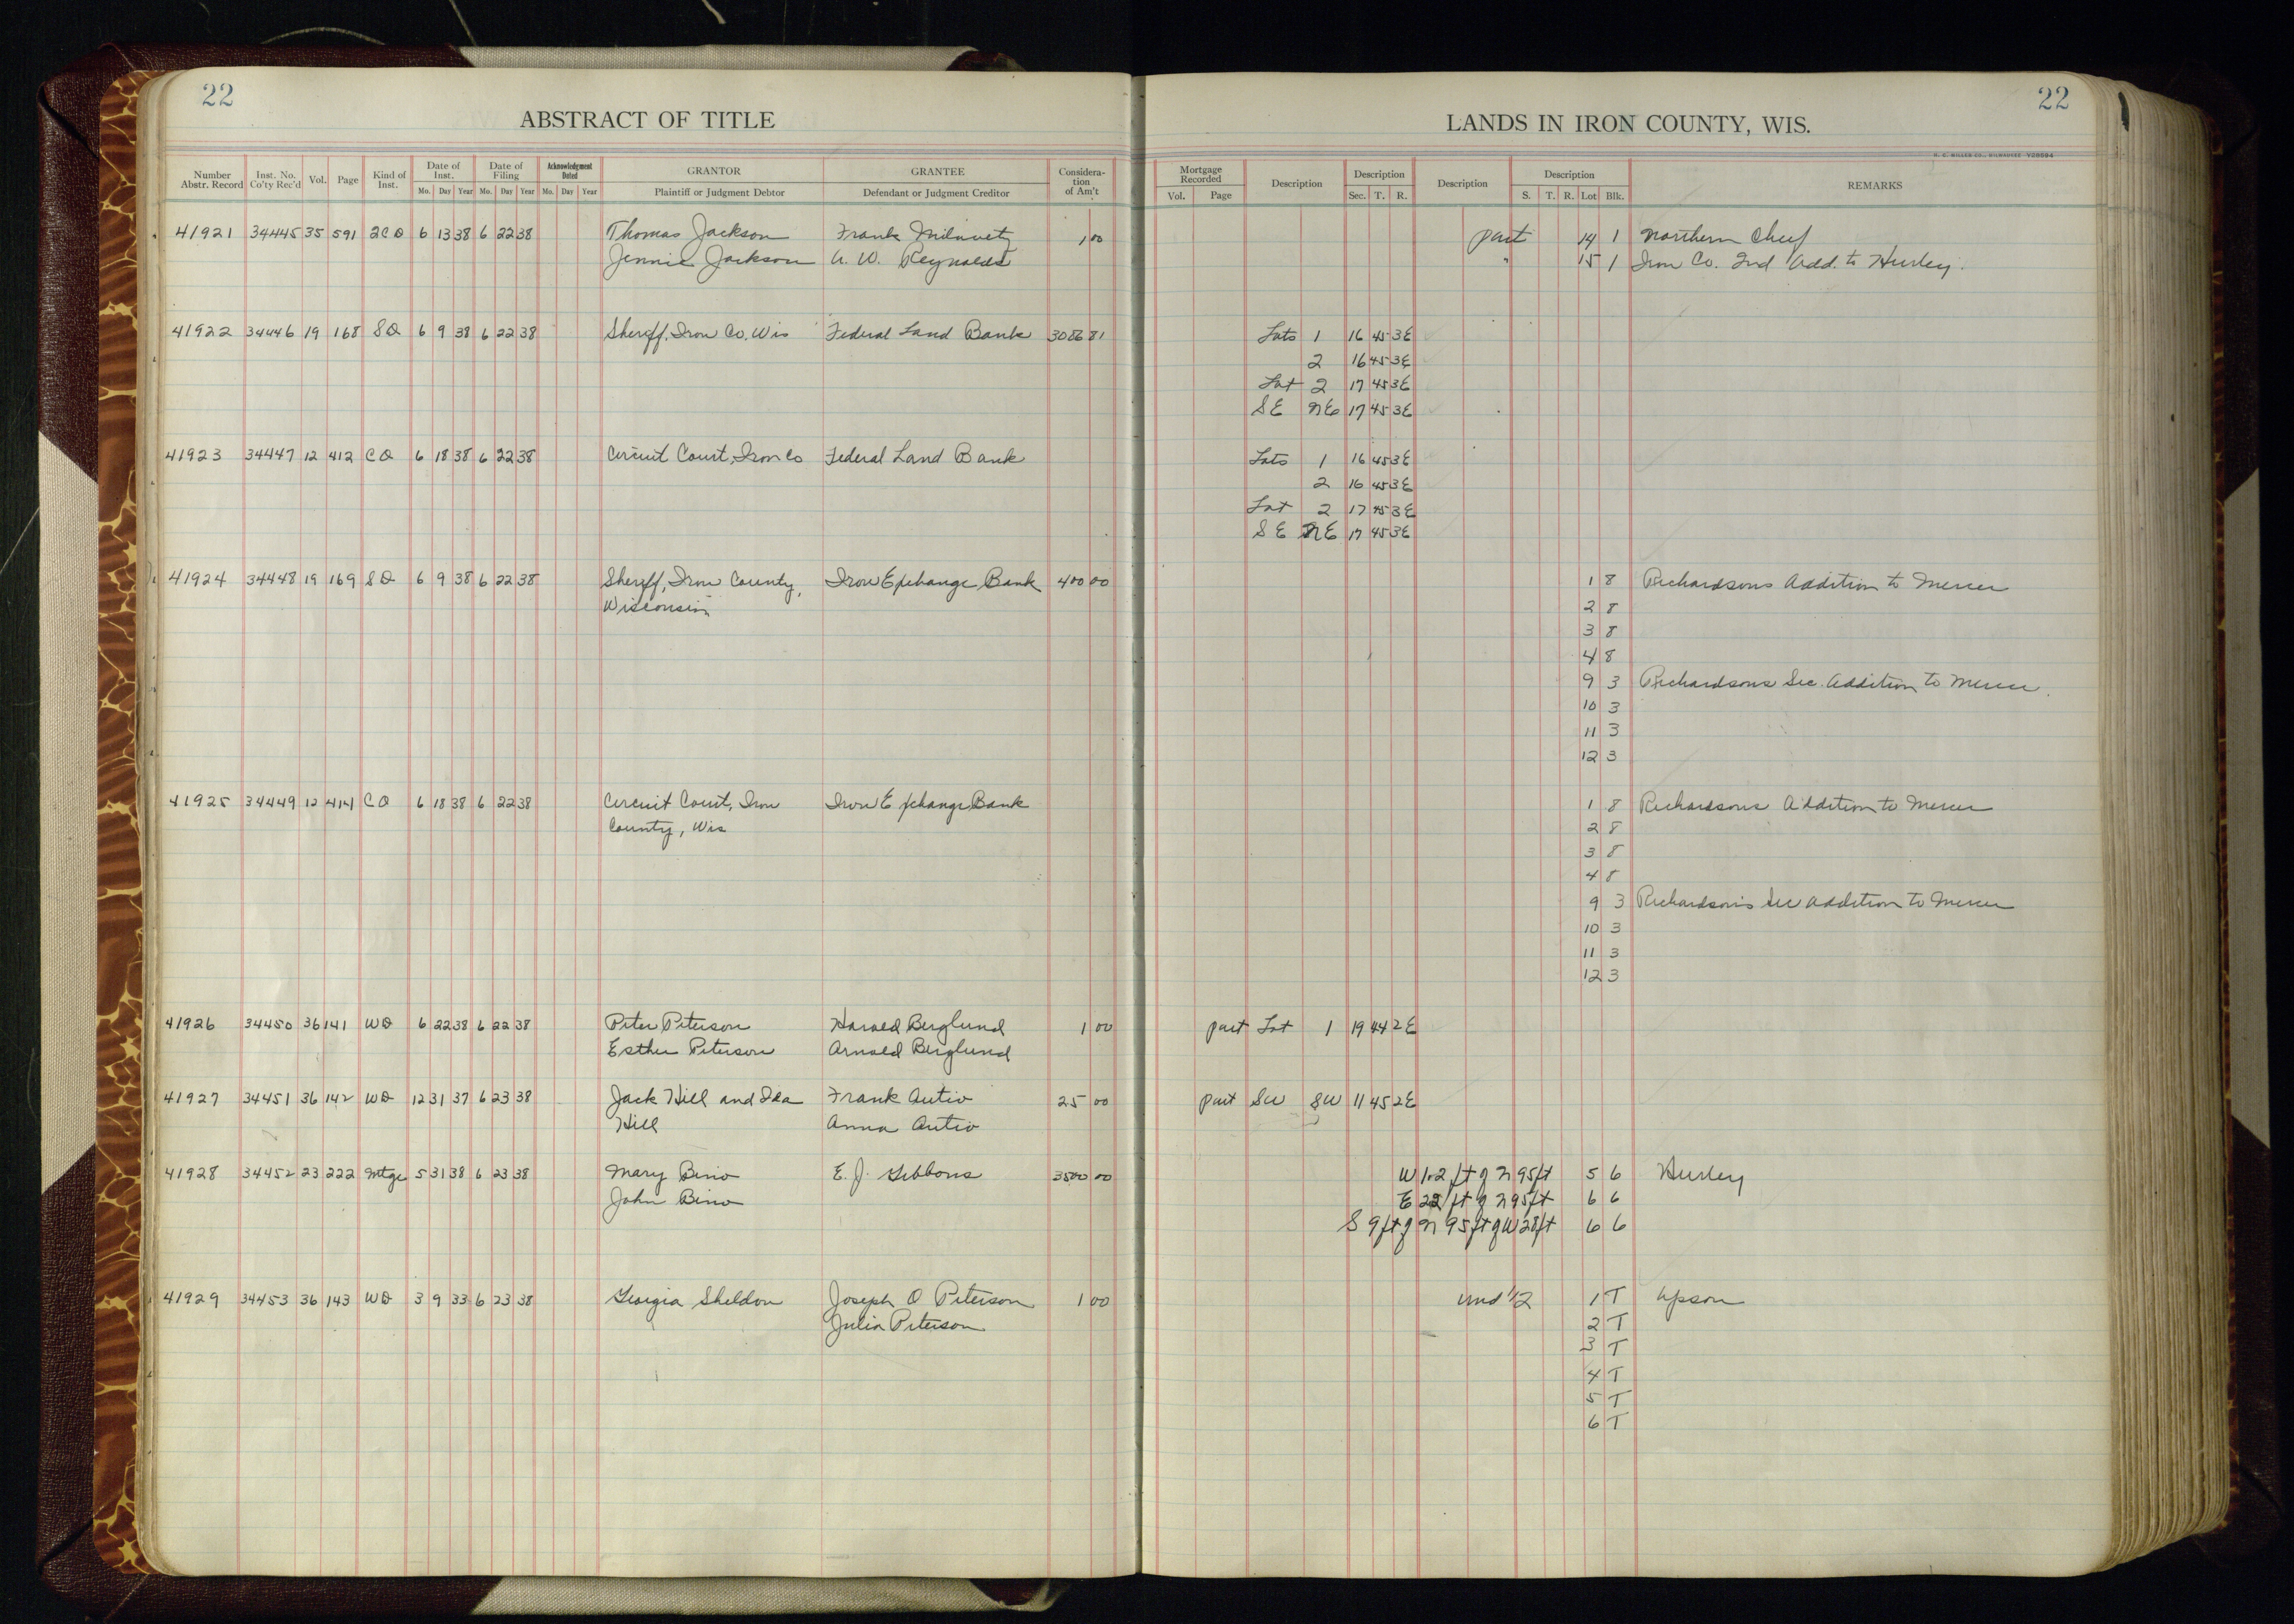 22
ABSTRACT OF TITLE
Number Abstr. Record Inst. No. Co'ty Rec'd Vol. Page Kind of Inst. Date of Inst. Mo. Day Year Date of Filing Mo. Day Year Acknowledgment Dated Mo. Day Year GRANTOR Plaintiff or Judgment Debtor GRANTEE Defendant or Judgment Creditor Consideration of Am't
41921 34445 35 591 2CD 6 13 38 6 22 38 Thomas Jackson Frank 1 00
Jennie Jackson A. W. Reynolds
41922 34446 19 168 SD 6 9 38 6 22 38 Sheriff, Iron Co. Wis Federal Land Bank 3086 81
41923 34447 12 412 CO 6 18 38 6 22 38 Circuit Court, Iron Co Federal Land Bank
41924 34448 19 169 SD 6 9 38 6 22 38 Sheriff, Iron County, Iron Exchange Bank 400 00
Wisconsin
41925 34449 12 414 CO 6 18 38 6 22 38 Circuit Court, Iron Iron Exchange Bank
County, Wis
41926 34450 36 141 WD 6 22 38 6 22 38 Peter Peterson Harold Berglund 1 00
Esther Peterson Arnold Berglund
41927 34451 36 142 WD 12 31 37 6 23 38 Jack Hill and Ida Frank Autio 25 00
Hill Anna Autio
41928 34452 23 222 Mtge 5 31 38 6 23 38 Mary Bino E. J. Gibbons 3500 00
John Bino
41929 34453 36 143 WD 3 9 33 6 23 38 Georgia Sheldon Joseph O Peterson 1 00
Julia Peterson
22
LANDS IN IRON COUNTY, WIS.
H. C. MILLER CO., MILWAUKEE
Mortgage Recorded Vol. Page Description Description Sec. T. R. Description Description S. T. R. Lot Blk. REMARKS
part 14 1 Northern Chief
" 15 1 Iron Co. 2nd Add. to Hurley.
Lots 1 16 45 3E
2 16 45 3E
Lot 2 17 45 3E
SE NE 17 45 3E
Lots 1 16 45 3E
2 16 45 3E
Lot 2 17 45 3E
SE NE 17 45 3E
1 8 Richardsons Addition to Mercer
2 8
3 8
4 8
9 3 Richardsons Sec. Addition to Mercer.
10 3
11 3
12 3
1 8 Richardsons Addition to Mercer
2 8
3 8
4 8
9 3 Richardson's Sec Addition to Mercer
10 3
11 3
12 3
part Lot 1 19 44 2E
part SW SW 11 45 2E
W 1.2 ft of N 95 ft 5 6 Hurley
E 22 ft of N 95 ft 6 6
S 9 ft of N 95 ft of W 28 ft 6 6
und 1/2 1 T Upson
2 T
3 T
4 T
5 T
6 T